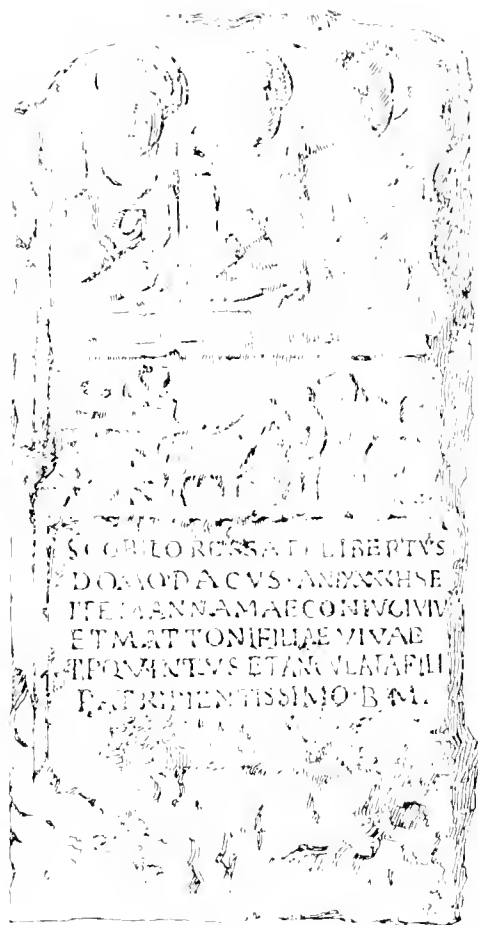 SCORILO RESSATI LIBERTVS
DOMO·DACVS· H S E
ITEM ANNAMAE CONIVGI VIV
ET MATTONI FILIAE VIVAE
QVINTVS ET ANCVLATA FILI
PATRI PIENTISSIMO·B·M·